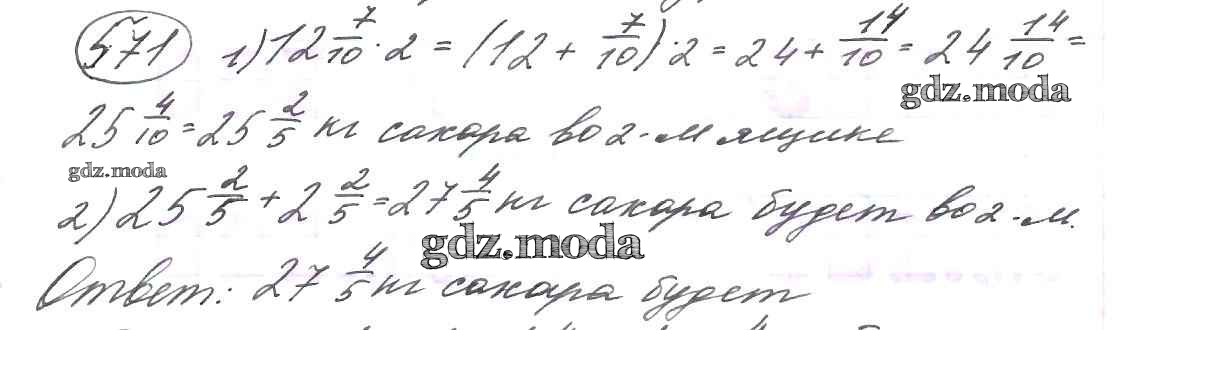 571 1) 12 7/10 · 2 = (12 + 7/10) · 2 = 24 + 14/10 = 24 14/10 =
gdz.moda
25 4/10 = 25 2/5 кг сахара во 2-м ящике
gdz.moda
2) 25 2/5 + 2 2/5 = 27 4/5 кг сахара будет во 2-м.
gdz.moda
Ответ: 27 4/5 кг сахара будет